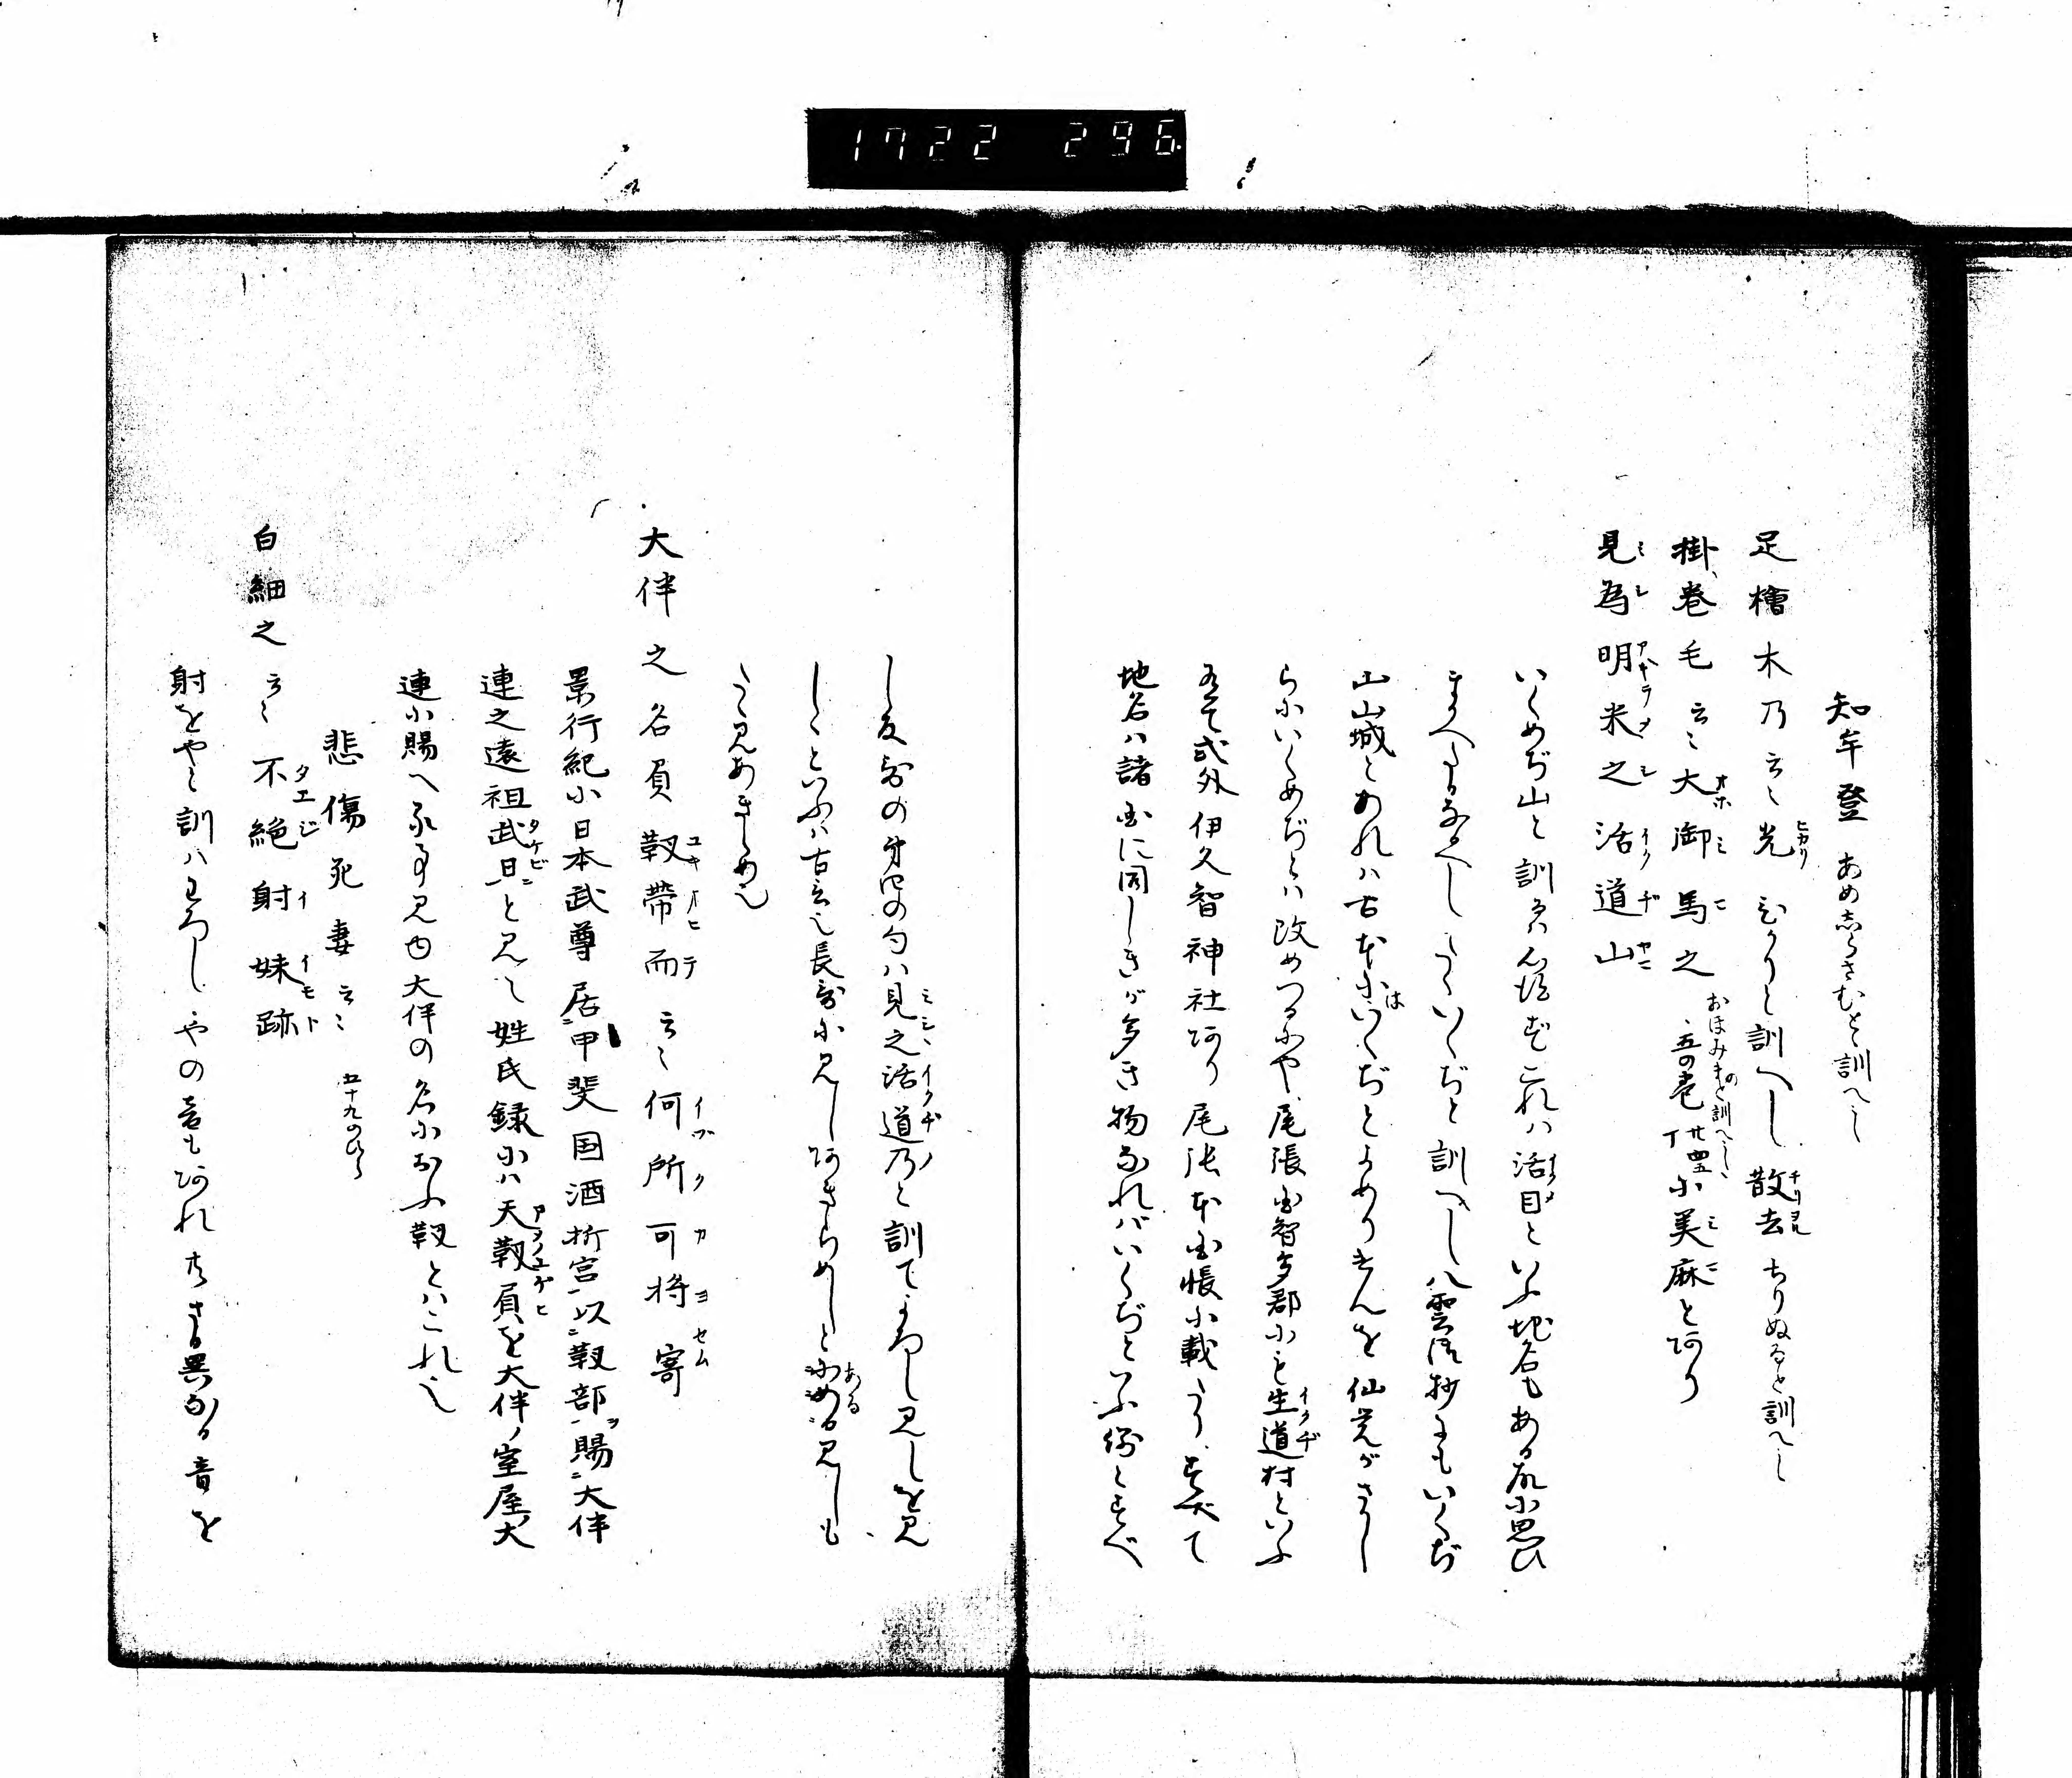 1722 296
知牟登 あめしらさむと訓へし
足檜木乃云〻光 ひかりと訓へし 散去 ちりぬると訓へし
掛巻毛云〻大御馬之 おほみまのと訓へし 五の巻廿四丁小美麻とあり
見為明米之活道山
いくめぢ山と訓 これハ活目といふ地名もある故小思ひ
まかへたるなるへし たゝいくぢと訓へし 八雲御抄にもいくぢ
山山城とあれハ古本にはいくぢとよめりけんを仙覚がさかし
ら小いくめぢとハ改めつるにや 尾張国智多郡小も生道村といふ
有て式外伊久智神社あり 尾張本国帳小載たり すべて
地名ハ諸国に同しきが多き物なれバいくぢといふ例とすべ
し 反歌の 句ハ見之活道乃と訓てよろし 見しを見
しゝといふハ古言也 長歌小見しあきらめしとある見しも
たゝ見あきらめ也
大伴之名負靱帯而云〻何所可将寄
景行紀小日本武尊居甲斐国酒折宮以靱部賜大伴
連之遠祖武日と見え 姓氏録小ハ天靱負を大伴ノ室屋大
連小賜へる事見ゆ 大伴の名小おふ靱とハこれ也
悲傷死妻云〻 五十九のひら
白細之云〻不絶射妹跡
射をやと訓ハわろし やの音もあれとさる異なる音を